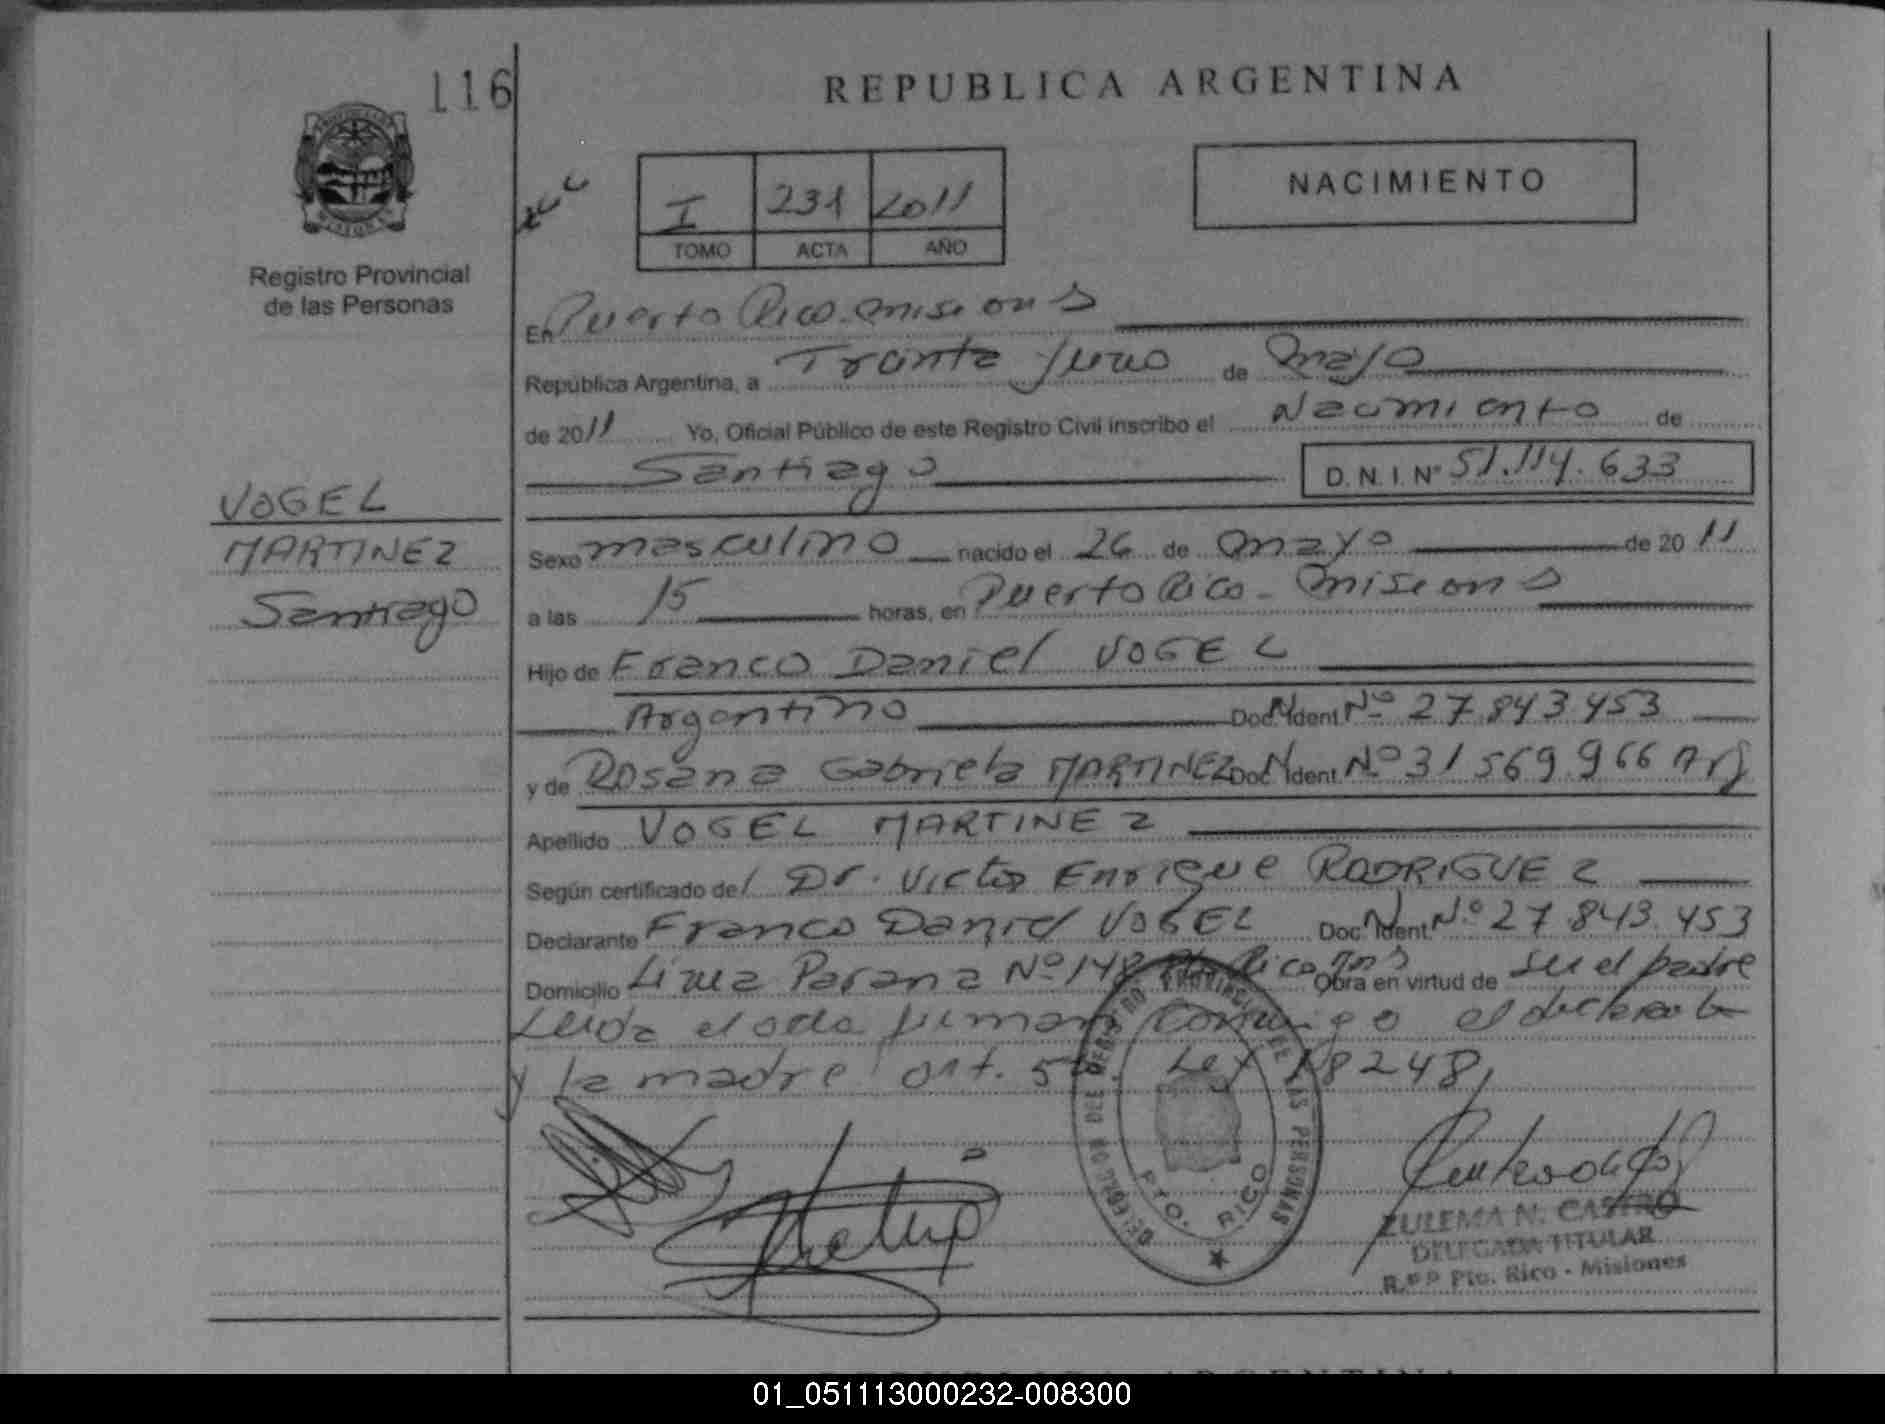 116
REPUBLICA ARGENTINA
I 231 2011
TOMO ACTA AÑO
NACIMIENTO
Registro Provincial
de las Personas
En Puerto Rico. misiones
República Argentina, a Treinta y uno de mayo
de 2011 Yo, Oficial Público de este Registro Civil inscribo el Nacimiento de
Santiago D.N.I. Nº 51.114.633
VOGEL
MARTINEZ
Santiago
Sexo masculino nacido el 26 de mayo de 2011
a las 15 horas, en Puerto Rico - misiones
Hijo de Franco Daniel VOGEL
Argentino Doc. Ident. Nº 27 843 453
y de Rosana Gabriela MARTINEZ Doc. Ident. Nº 31 569 966 Arg
Apellido VOGEL MARTINEZ
Según certificado del Dr. Victor Enrique RODRIGUEZ
Declarante Franco Daniel VOGEL Doc. Ident. Nº 27.843.453
Domicilio Linea Parana Nº 148 Pto Rico Mns Obra en virtud de ser el padre
Leida el acta firman conmigo el declarante
y la madre art. Ley 18248
DELEGACION DEL REGISTRO PROVINCIAL DE LAS PERSONAS
PTO. RICO
ZULEMA N. CASTRO
DELEGADA TITULAR
R.P.P Pto. Rico - Misiones
01_051113000232-008300